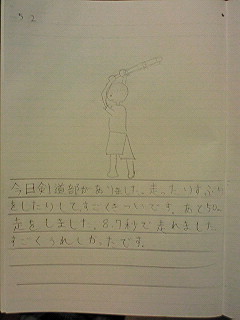 52
今日剣道部がありました。走ったりすぶり
をしたりして、すごくきついです。あと50
走をしました。8.7秒で走れました
すごくうれしかったです。